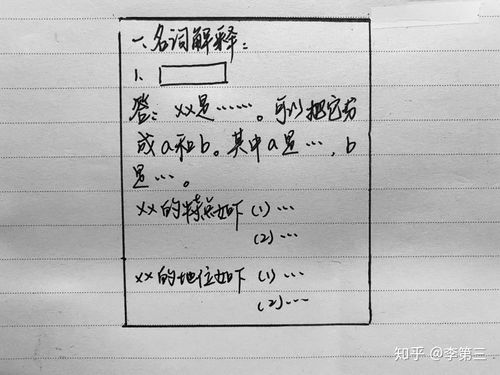 一、名词解释：
1、
答：xx是……。可以把它分
成a和b。其中a是…，b
是…。
xx的特点如下（1）…
（2）…
xx的地位如下（1）…
（2）…
知乎 @李第三